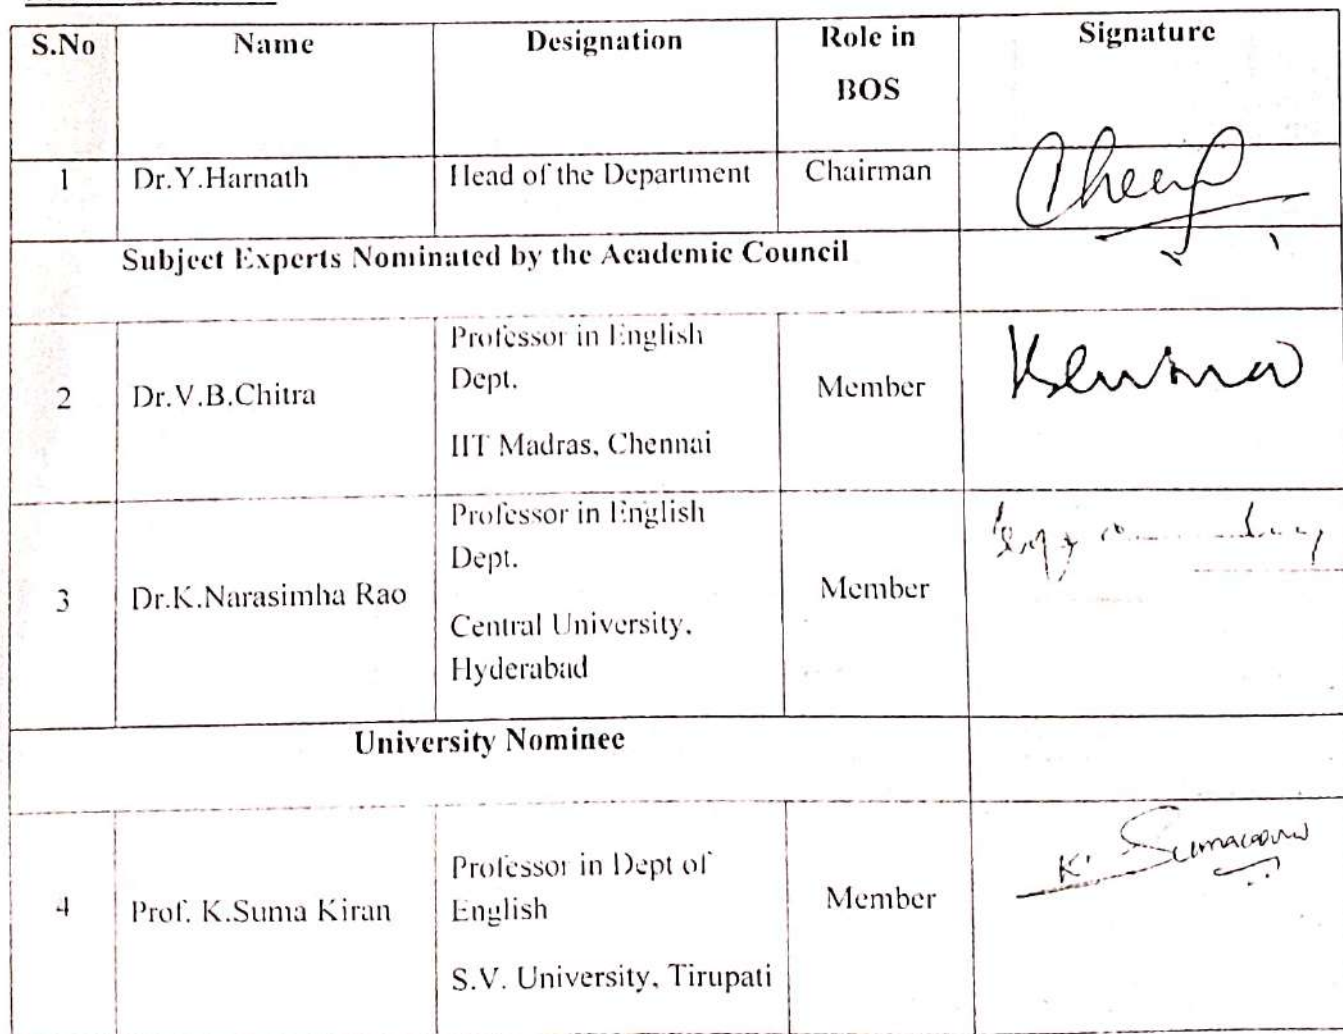 S.No Name Designation Role in BOS Signature
1 Dr.Y.Harnath Head of the Department Chairman
Subject Experts Nominated by the Academic Council
2 Dr.V.B.Chitra Professor in English Dept. IIT Madras, Chennai Member
3 Dr.K.Narasimha Rao Professor in English Dept. Central University, Hyderabad Member
University Nominee
4 Prof. K.Suma Kiran Professor in Dept of English S.V. University, Tirupati Member
K.